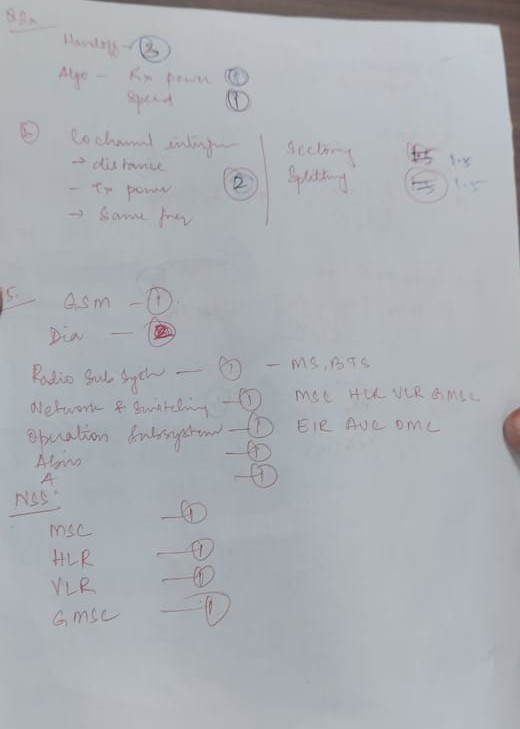 Handoff - 3
Algo - Rx power 1
Speed 1
b) Co channel interfern
→ distance
- Tx power 2
→ Same freq
Sectoring 1.5
Splitting 1.5
5. GSM - 1
Dia -
Radio Sub System - 1 - MS, BTS
Network & Switching - 1 MSC HLR VLR GMSC
Operation Subsystem - 1 EIR AUC OMC
Abis - 1
A - 1
NSS:
MSC - 1
HLR - 1
VLR - 1
GMSC - 1